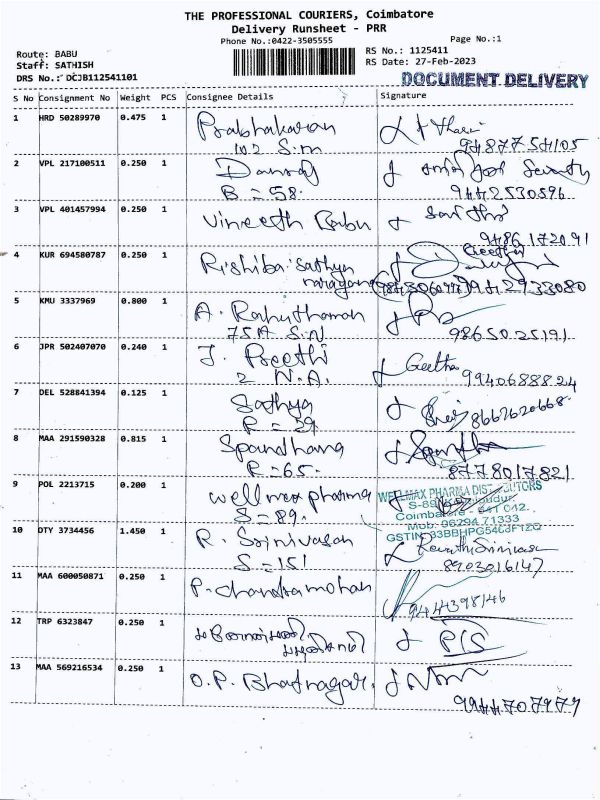 THE PROFESSIONAL COURIERS, Coimbatore
Delivery Runsheet - PRR
Phone No.:0422-3505555
Page No.:1
Route: BABU
Staff: SATHISH
DRS No.: DCJB112541101
RS No.: 1125411
RS Date: 27-Feb-2023
DOCUMENT DELIVERY
S No Consignment No Weight PCS Consignee Details Signature
1 HRD 50289970 0.475 1 Prabhakaran
102 S.m
94877 54105
2 VPL 217100511 0.250 1
B = 58.
9442530596
3 VPL 401457994 0.250 1 Vineeth Babu
9486172091
4 KUR 694580787 0.250 1 Rishiba Sathya
narayana
9442933080
5 KMU 3337969 0.800 1 A.
75A S.N
98650 25191
6 JPR 502407070 0.240 1 J. Preethi Geetha
2 N.A. 9940688824
7 DEL 528841394 0.125 1 Sathya
R = 59 8667620668
8 MAA 291590328 0.815 1 Spandhana
R = 65. 8778017821
9 POL 2213715 0.200 1 Wellmax pharma
S = 89.
WELLMAX PHARMA DISTRIBUTORS
Coimbatore - 641 042.
Mob: 96294 71333
10 DTY 3734456 1.450 1 R. Srinivasan
S = 151
Revathi Srinivasan
8903016147
11 MAA 600050871 0.250 1 P. Chandramohan
9444398146
12 TRP 6323847 0.250 1
13 MAA 569216534 0.250 1 O.P. Bhatnagar.
9944707977